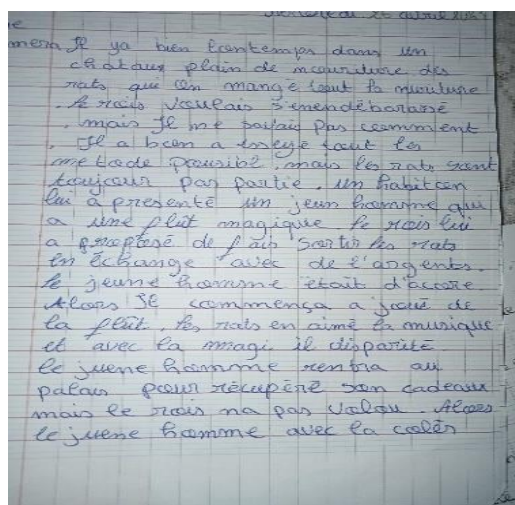 avril
Il ya bien lontemps dans un
chataux plain de nouriture des
rats qui on mangé tout la nouriture
. le rois voulais s'enendébarassé
. mais Il ne savais pas comment
. Il a bien a esseyé tout les
metode possible. mais les rats sont
toujour pas partie. un habitan
lui a presenté un jeun homme qui
a une flût magique le rois lui
a proposé de fair sortir les rats
en échange avec de l'argents.
le jeune homme était d'accore
Alors Il commença a joué de
la flût. les rats en aimé la musique
et avec la magi il disparité
le juene homme rentra au
palais pour récupéré son cadeaux
mais le rois na pas voulou. Alors
le juene homme avec la colèr